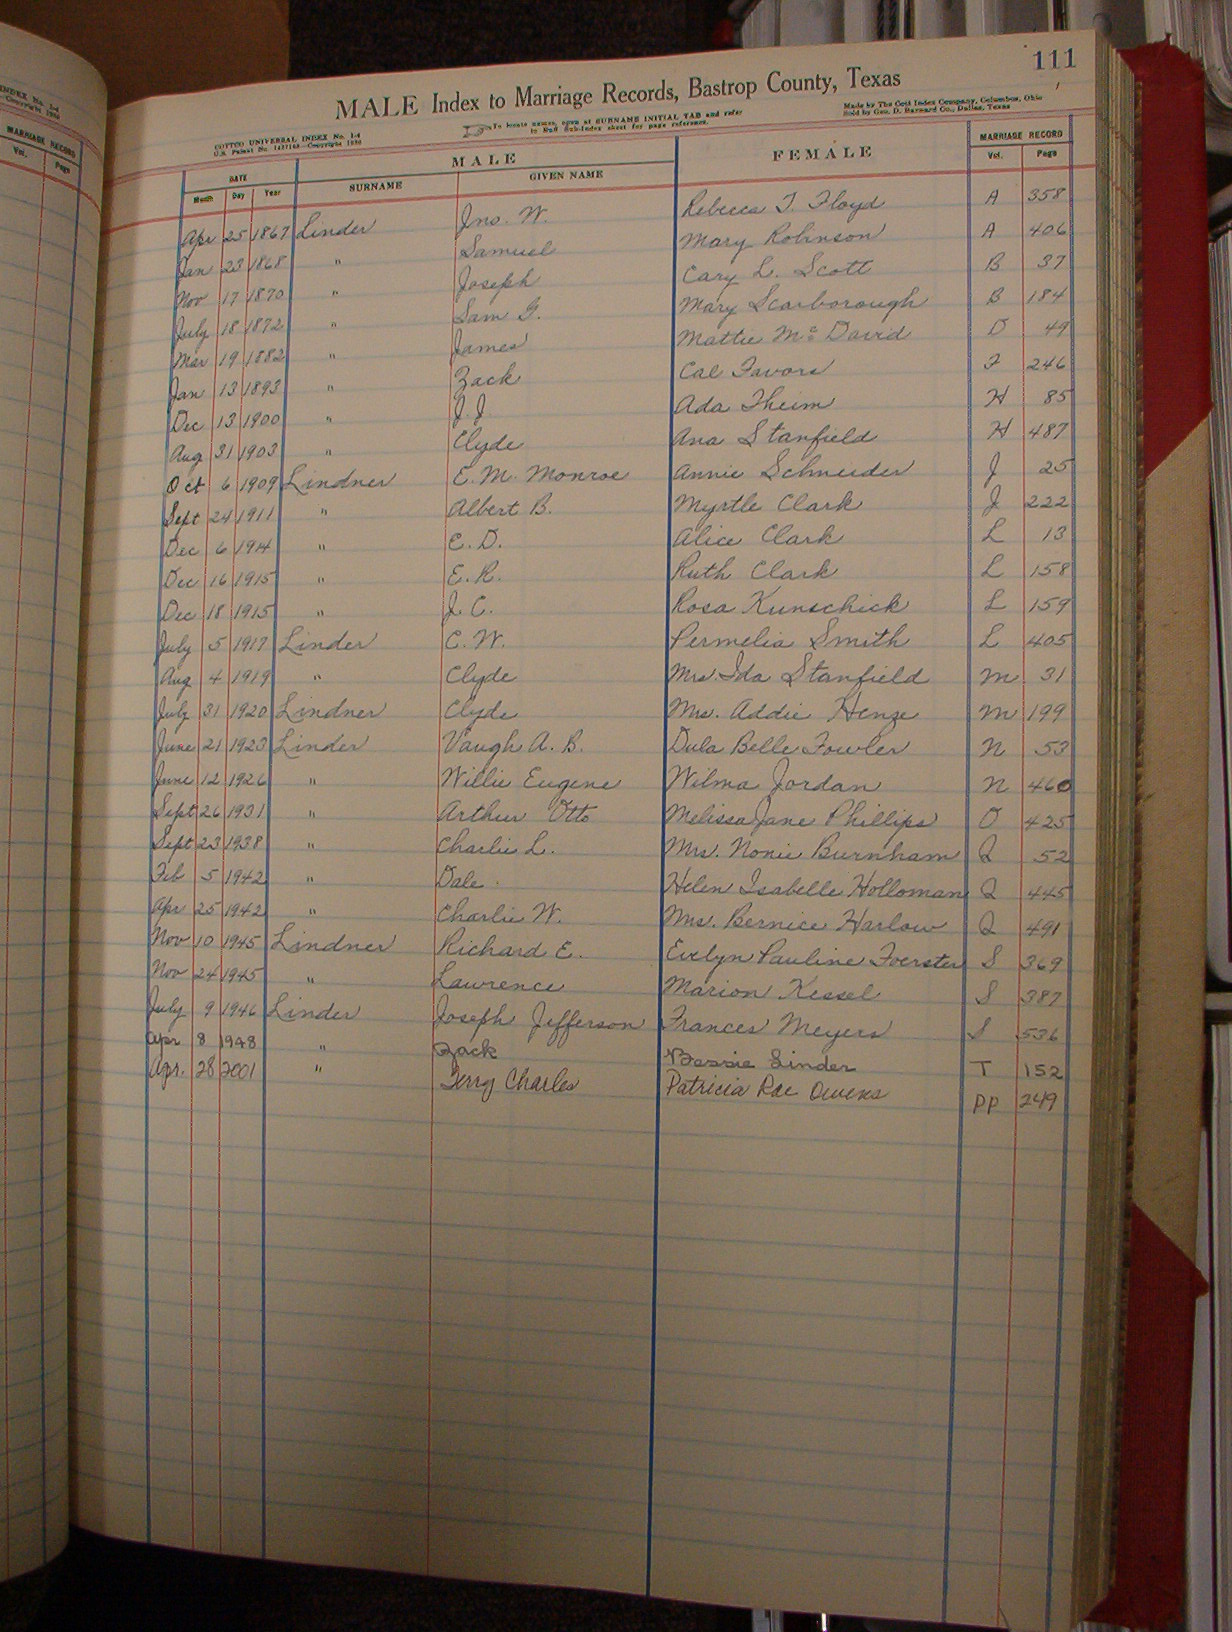 INDEX No. 1-4
MARRIAGE RECORD
Vol. Page
111
MALE Index to Marriage Records, Bastrop County, Texas
COTTCO UNIVERSAL INDEX No. 1-4
To locate names, open at SURNAME INITIAL TAB and refer
to Buff Sub-Index sheet for page reference.
Made by The Cott Index Company, Columbus, Ohio
Sold by Geo. D. Barnard Co., Dallas, Texas
DATE MALE FEMALE MARRIAGE RECORD
Month Day Year SURNAME GIVEN NAME Vol. Page
Apr 25 1867 Linder Jno. W. Rebecca T. Floyd A 358
Jan 23 1868 " Samuel Mary Robinson A 406
Nov 17 1870 " Joseph Cary L. Scott B 37
July 18 1872 " Sam G. Mary Scarborough B 184
Mar 19 1882 " James Mattie Mc David D 49
Jan 13 1893 " Zack Cal Favors F 246
Dec 13 1900 " J. J Ada Theim H 85
Aug 31 1903 " Clyde Ana Stanfield H 487
Oct 6 1909 Lindner E. M. Monroe Annie Schneider J 25
Sept 24 1911 " Albert B. Myrtle Clark J 222
Dec 6 1914 " E. D. Alice Clark L 13
Dec 16 1915 " E. R. Ruth Clark L 158
Dec 18 1915 " J. C. Rosa Kunschick L 159
July 5 1917 Linder C. W. Permelia Smith L 405
Aug 4 1919 " Clyde Mrs. Ida Stanfield M 31
July 31 1920 Lindner Clyde Mrs. Addie Henze M 199
June 21 1923 Linder Vaugh A. B. Dula Belle Fowler N 53
June 12 1926 " Willie Eugene Wilma Jordan N 460
Sept 26 1931 " Arthur Otto Melissa Jane Phillips O 425
Sept 23 1938 " Charlie L. Mrs. Nonie Burnham Q 52
Feb 5 1942 " Dale Helen Isabelle Holloman Q 445
Apr 25 1942 " Charlie W. Mrs. Bernice Harlow Q 491
Nov 10 1945 Lindner Richard E. Evelyn Pauline Foerster S 369
Nov 24 1945 " Lawrence Marion Kessel S 387
July 9 1946 Linder Joseph Jefferson Frances Meyers S 536
Apr 8 1948 " Zack Bessie Linder T 152
Apr. 28 2001 " Terry Charles Patricia Rae Owens PP 249